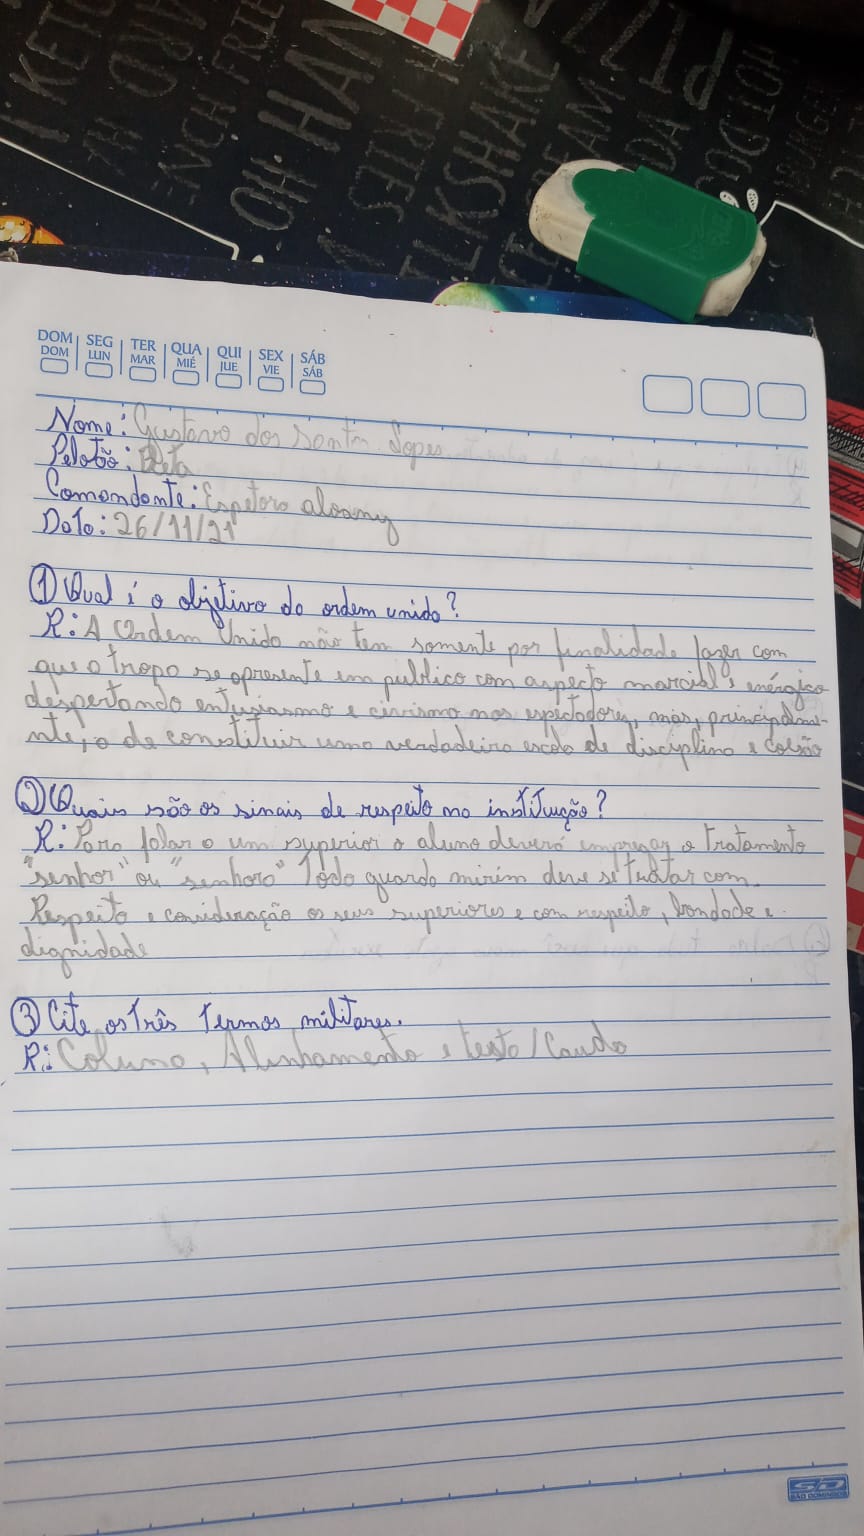 KETC
NCH FRIE
OH HAN
FRIES
LKSHAKE
CREAM
PIZZA
HOT DOG
BURGER
DOM SEG TER QUA QUI SEX SÁB
DOM LUN MAR MIÉ JUE VIE SÁB
Nome: Gustavo dos Santos Lopes
Pelotão: Beta
Comandante: Espetora aloany
Data: 26/11/21
① Qual é o objetivo da ordem unida?
R: A Ordem Unida não tem somente por finalidade fazer com
que a tropa se apresente em publico com aspecto marcial e enérgico
despertando entusiasmo e civismo nos espectadores, mas, principalme-
nte, o de constituir uma verdadeira escola de disciplina e coesão
② Quais são os sinais de respeito na instituição?
R: Para falar a um superior o aluno deverá empregar o tratamento
"senhor" ou "senhora" Todo guarda mirim deve se tratar com
Respeito e consideração os seus superiores e com respeito, bondade e
dignidade
③ Cite os três termos militares.
R: Coluna, Alinhamento e testa/Cauda
SD
SÃO DOMINGOS